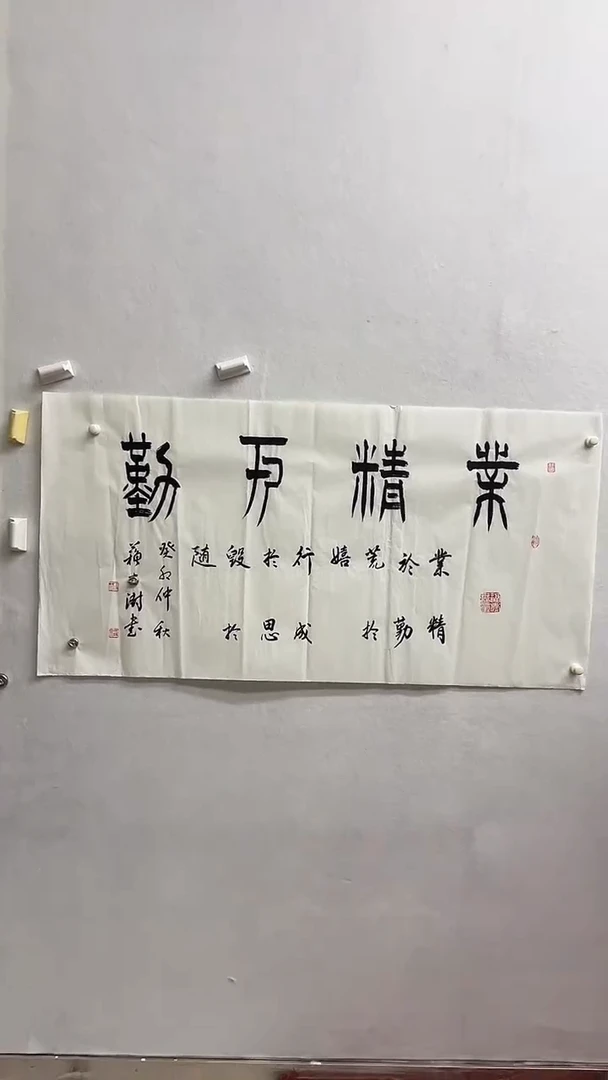 業精于勤
業精
於勤
荒於
嬉
行成
於思
毀於
随
癸卯仲秋
蘇士澍書